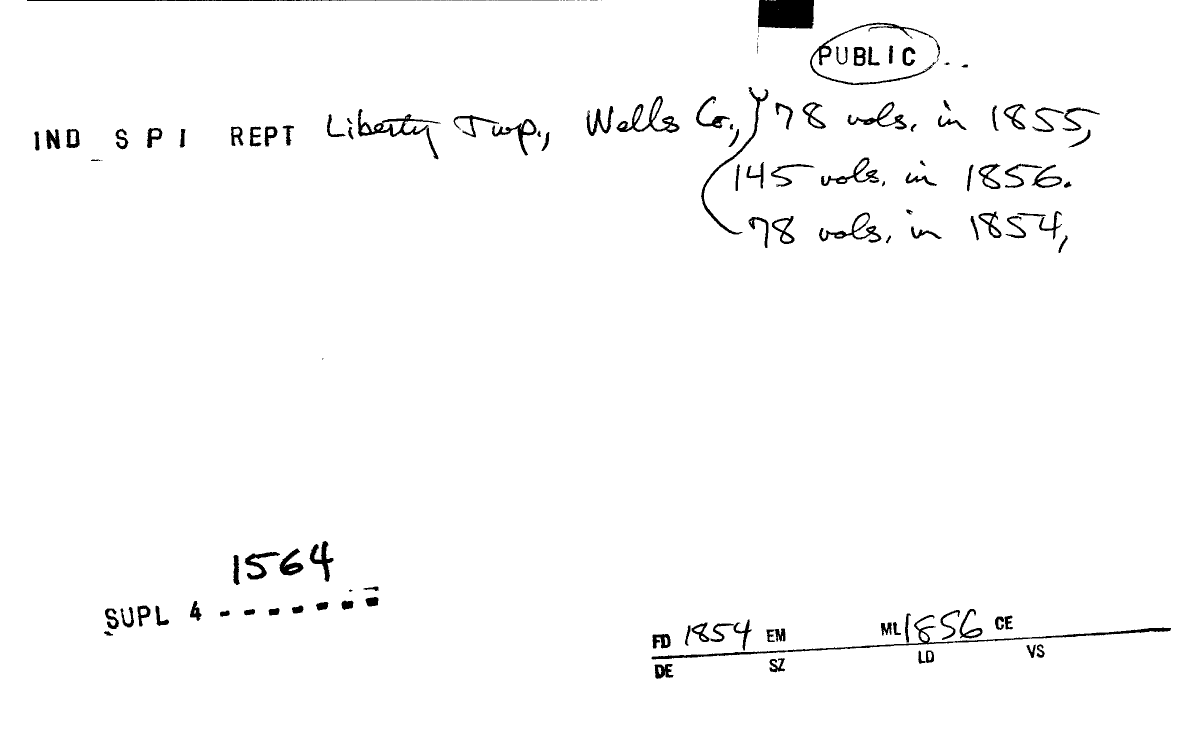 PUBLIC . .
IND S P I REPT Liberty Twp., Wells Co., 78 vols. in 1855,
145 vols. in 1856.
78 vols. in 1854,
1564
SUPL 4 - - - - - - -
FD 1854 EM ML 1856 CE
DE SZ LD VS